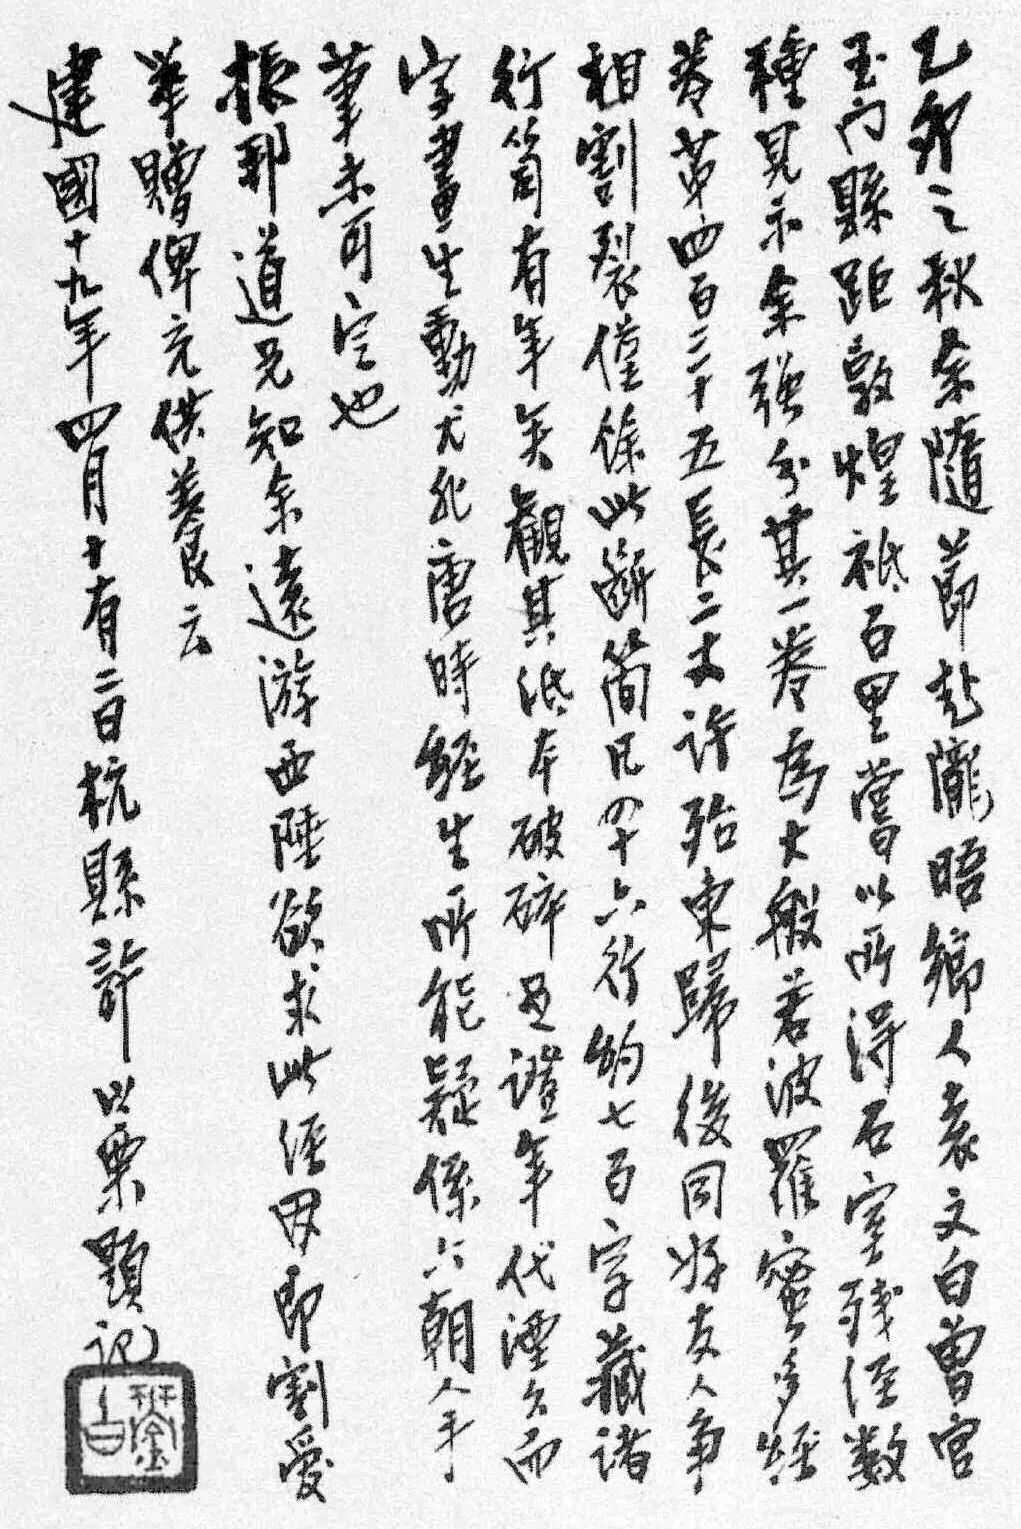 乙卯之秋余隨節赴隴晤鄉人袁文白曾官
玉門縣距敦煌祇百里嘗以所得石室殘經數
種見示余強分其一卷為大般若波羅蜜多經
卷第四百二十五長二丈許殆東歸後同好友人爭
相割裂僅餘此斷簡凡四十六行約七百字藏諸
行笥有年矣觀其紙本破碎足證年代湮久而
字畫生動尤非唐時經生所能疑係六朝人手
筆未可定也
振郡道兄知余遠游西陲欲求此經因即割愛
舉贈俾充供養云
建國十九年四月十有二日杭縣許以栗題記